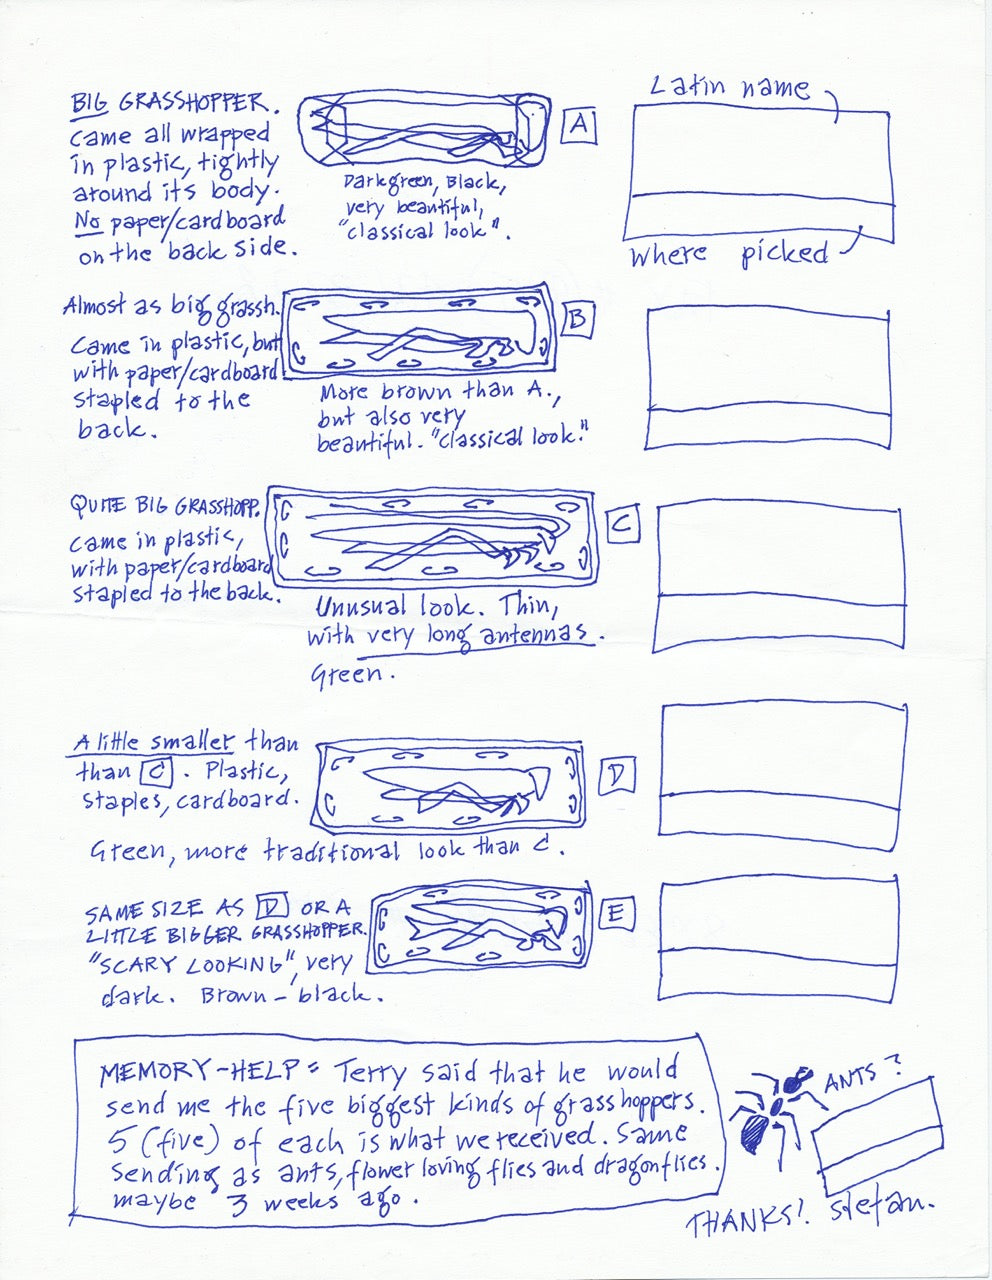 BIG GRASSHOPPER.
Came all wrapped
in plastic, tightly
around its body.
No paper/cardboard
on the back side.
A
Darkgreen, Black,
very beautiful,
"classical look".
Latin name
Where picked
Almost as big grassh.
Came in plastic, but
with paper/cardboard
stapled to the
back.
B
More brown than A.,
but also very
beautiful. "classical look."
QUITE BIG GRASSHOPP.
Came in plastic,
with paper/cardboard
stapled to the back.
C
Unusual look. Thin,
with very long antennas.
Green.
A little smaller than
than C. Plastic,
staples, cardboard.
D
Green, more traditional look than C.
SAME SIZE AS D OR A
LITTLE BIGGER GRASSHOPPER.
"SCARY LOOKING", very
dark. Brown-black.
E
MEMORY-HELP: Terry said that he would
send me the five biggest kinds of grasshoppers.
5 (five) of each is what we received. Same
sending as ants, flower loving flies and dragonflies.
maybe 3 weeks ago.
ANTS?
THANKS! Stefan.